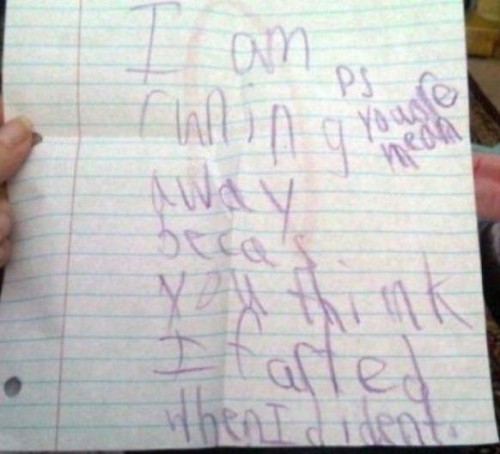 I am
runing
away
becas
you think
I farted
when I dident.
PS
you are
mean